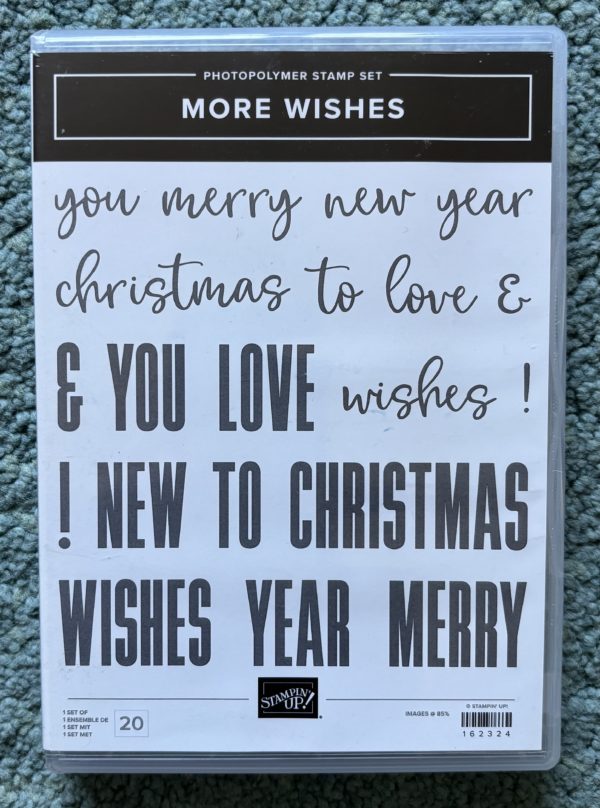 PHOTOPOLYMER STAMP SET
MORE WISHES
you merry new year
christmas to love &
& YOU LOVE wishes !
! NEW TO CHRISTMAS
WISHES YEAR MERRY
1 SET OF
1 ENSEMBLE DE
1 SET MIT
1 SET MET
20
STAMPIN' UP!®
IMAGES @ 85%
© STAMPIN' UP!
162324